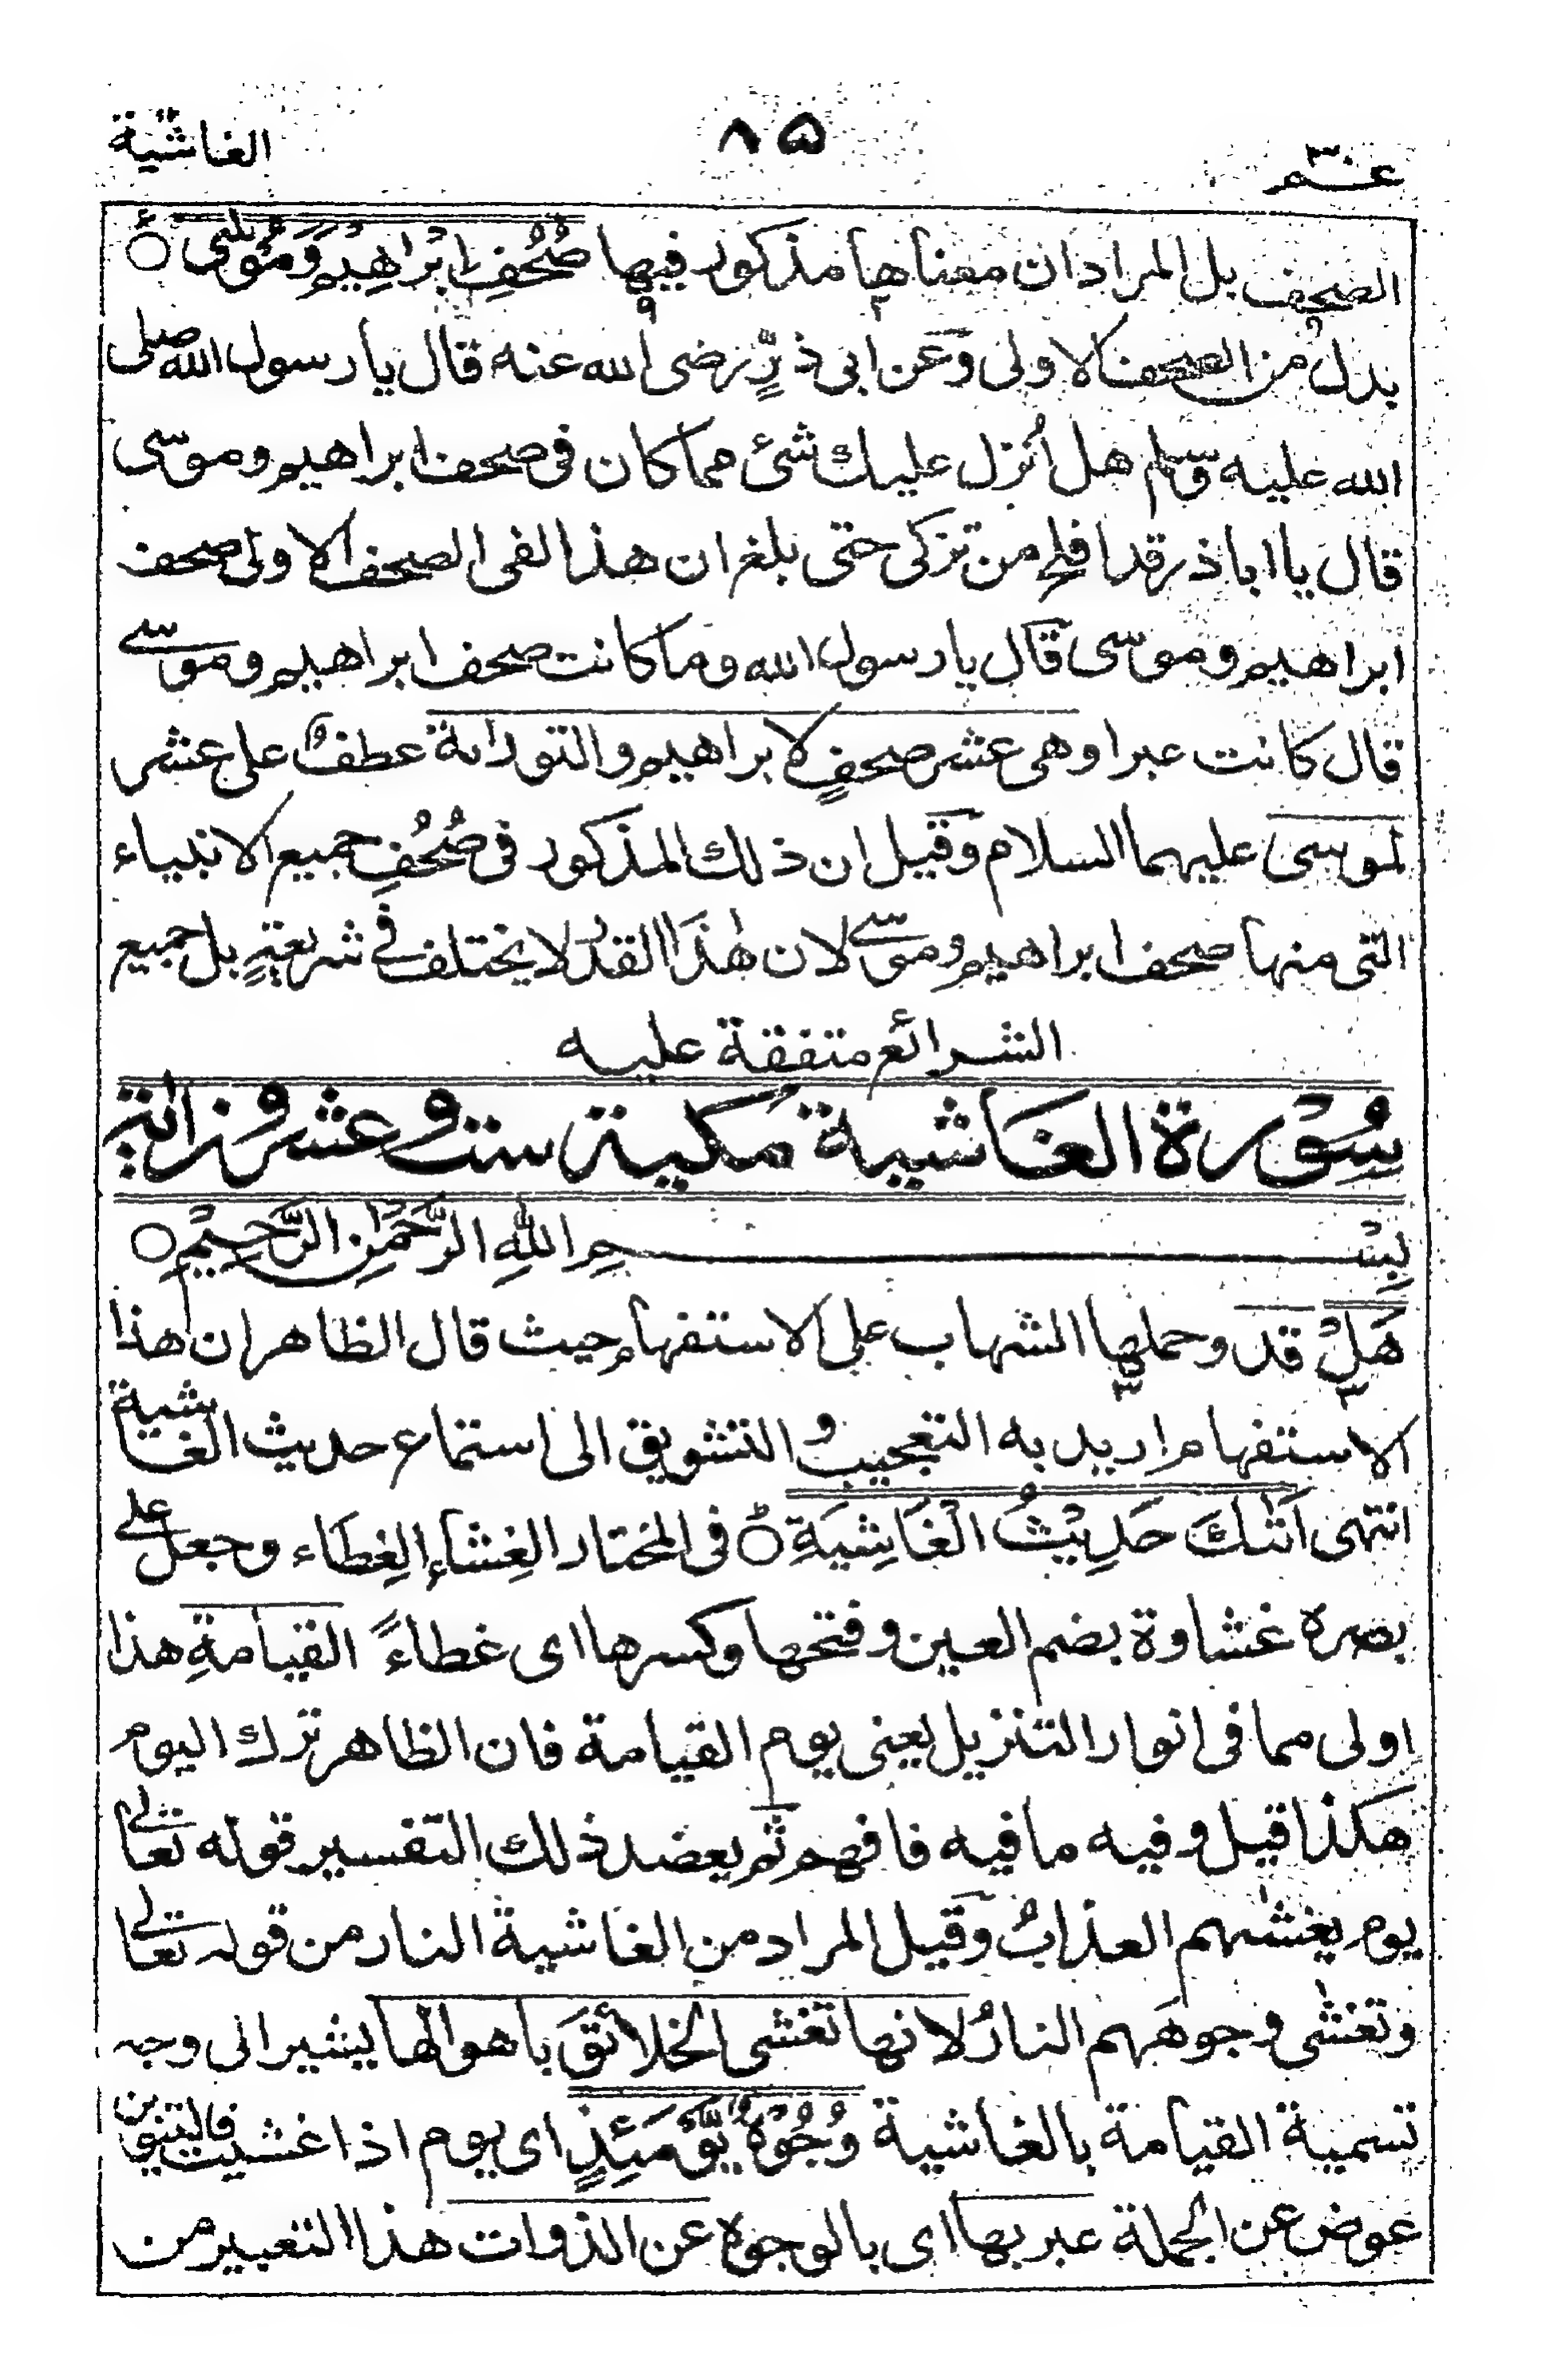 عم ٣٠
٨٥
الغاشية
الصحف بل المراد ان معناها مذكور فيها صُحُفِ اِبْرَاهِيْمَ وَمُوْسٰى ○
بدل من الصحف الاولى وعن ابى ذرٍّ رضى الله عنه قال يا رسول الله صلى
الله عليه وسلم هل اُنزل عليك شئ مما كان فى صحف ابراهيم وموسى
قال يا ابا ذر قد افلح من تزكى حتى بلغ ان هذا لفى الصحف الاولى صحف
ابراهيم وموسى قال يا رسول الله وما كانت صحف ابراهيم وموسى
قال كانت عبرا وهى عشر صحفٍ لابراهيم والتوراىة عطفٌ على عشر
لموسى عليهما السلام وقيل ان ذلك المذكور فى صُحُفِ جميع الانبياء
التى منها صحف ابراهيم وموسى لان هٰذا القدر لا يختلف فى شريعةٍ بل جميع
الشرائع متفقة عليه
سُوْرة الغَاشية مَكية ست وعشرون اٰية
بِسْمِ اللّٰهِ الرَّحْمٰنِ الرَّحِيْمِ ○
هَلْ قد وحملها الشهاب على الاستفهام حيث قال الظاهر ان هذا
الاستفهام اريد به التعجيب والتشويق الى استماع حديث الغاشية
انتهى اَتٰىكَ حَدِيْثُ الْغَاشِيَةِ ○ فى المختار الغِشَاء الغِطَاء وجعل على
بصره غشاوة بضم العين وفتحها وكسرها اى غطاءً القيامةِ هذا
اولى مما فى انوار التنزيل يعنى يوم القيامة فان الظاهر ترك اليوم
هكذا قيل وفيه ما فيه فافهم ثم يعضد ذلك التفسير قوله تعالى
يوم يغشٰىهم العذابُ وقيل المراد من الغاشية النار من قوله تعالى
وتغشٰى وجوهَهم النارُ لانها تغشى الخلائقَ باهوالها يشير الى وجه
تسمية القيامة بالغاشية وُجُوْهٌ يَّوْمَئِذٍ اى يوم اذا غشيت فالتنوين
عوض عن الجملة عبر بها اى بالوجوه عن الذوات هذا التعبير من